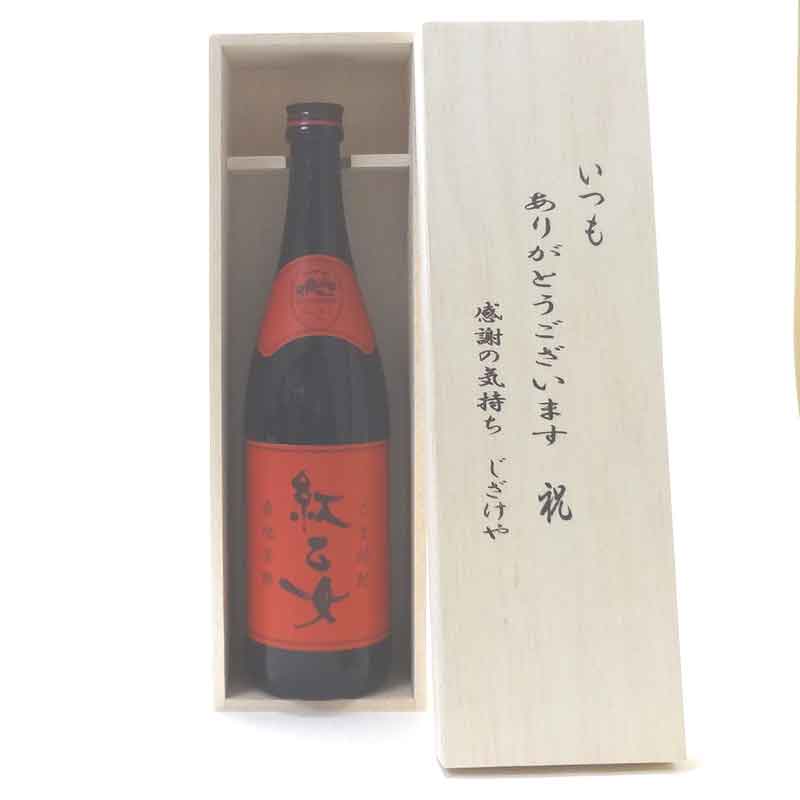 紅乙女
ごま焼酎
いつも
ありがとうございます 祝
感謝の気持ち じざけや